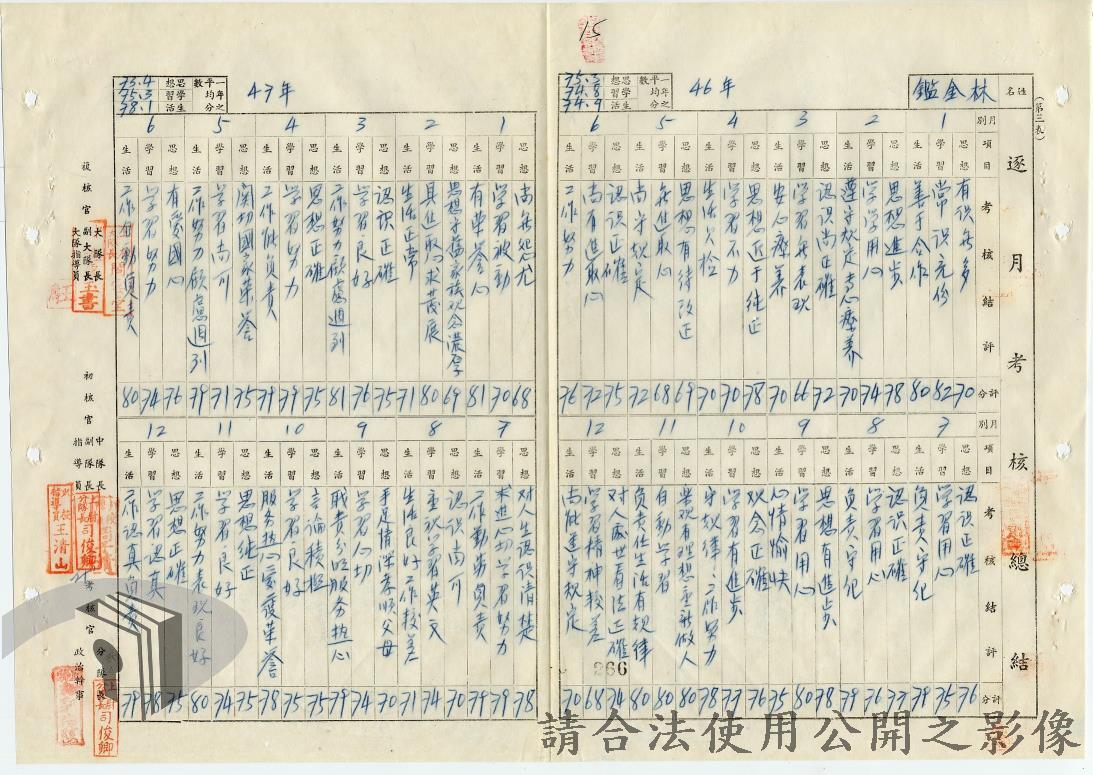 15
(第三表)
逐月考核總結
姓名
林金鑑
46年
一年之平均分數
思想 75.3
學習 74.8
生活 74.9
月別
項目
考核結評
評分
1
思想 有識無多 70
學習 常識充份 82
生活 善于合作 80
2
思想 思想進步 78
學習 學學用心 74
生活 遵守規定專心療養 70
3
思想 認識尚正確 72
學習 學習無表現 66
生活 安心療養 70
4
思想 思想近于純正 78
學習 學習不力 70
生活 生活欠檢 70
5
思想 思想有待改正 69
學習 無進取心 68
生活 尚守規定 72
6
思想 認識正確 75
學習 尚有進取心 72
生活 工作努力 76
月別
項目
考核結評
評分
7
思想 認識正確 76
學習 學習用心 75
生活 負責守紀 79
8
思想 認識正確 77
學習 學習用心 76
生活 負責守紀 79
9
思想 思想有進步 78
學習 學習用心 80
生活 心情愉快 75
10
思想 觀念正確 76
學習 學習有進步 77
生活 守規律,工作努力 78
11
思想 樂觀有理想重新做人 80
學習 自動學習 80
生活 負責任生活有規律 80
12
思想 對人處世看法正確 74
學習 學習精神較差 68
生活 尚能遵守規定 70
266
47年
一年之平均分數
思想 73.4
學習 75.3
生活 78.1
1
思想 尚無怨尤 68
學習 學習被動 70
生活 有榮譽心 81
2
思想 思想矛盾家族观念濃厚 69
學習 具進取心求發展 80
生活 生活正常 71
3
思想 認識正確 75
學習 學習良好 76
生活 工作努力顧慮週到 81
4
思想 思想正確 75
學習 學習努力 79
生活 工作能負責 79
5
思想 關切國家榮譽 75
學習 學習尚可 71
生活 工作努力顧慮週到 79
6
思想 有愛國心 76
學習 學習努力 74
生活 工作勤負責 80
7
思想 對人生認識清楚 78
學習 求進心切學習努力 79
生活 工作勤勞負責 79
8
思想 認識尚可 70
學習 重視學習英文 74
生活 生活良好工作較差 71
9
思想 手足情深孝順父母 70
學習 學習心切 74
生活 職責分明服务热心 78
10
思想 言論積極 75
學習 學習良好 75
生活 服務热心愛護榮譽 78
11
思想 思想純正 75
學習 學習良好 74
生活 工作努力表現良好 80
12
思想 思想正確 75
學習 學習認真 78
生活 工作認真負責 79
複核官
大隊長
副大隊長
大隊指導員
初核官
中隊長
副隊長
指導員
王清山
司俊卿
考核官
分隊長
政治幹事
司俊卿
請合法使用公開之影像